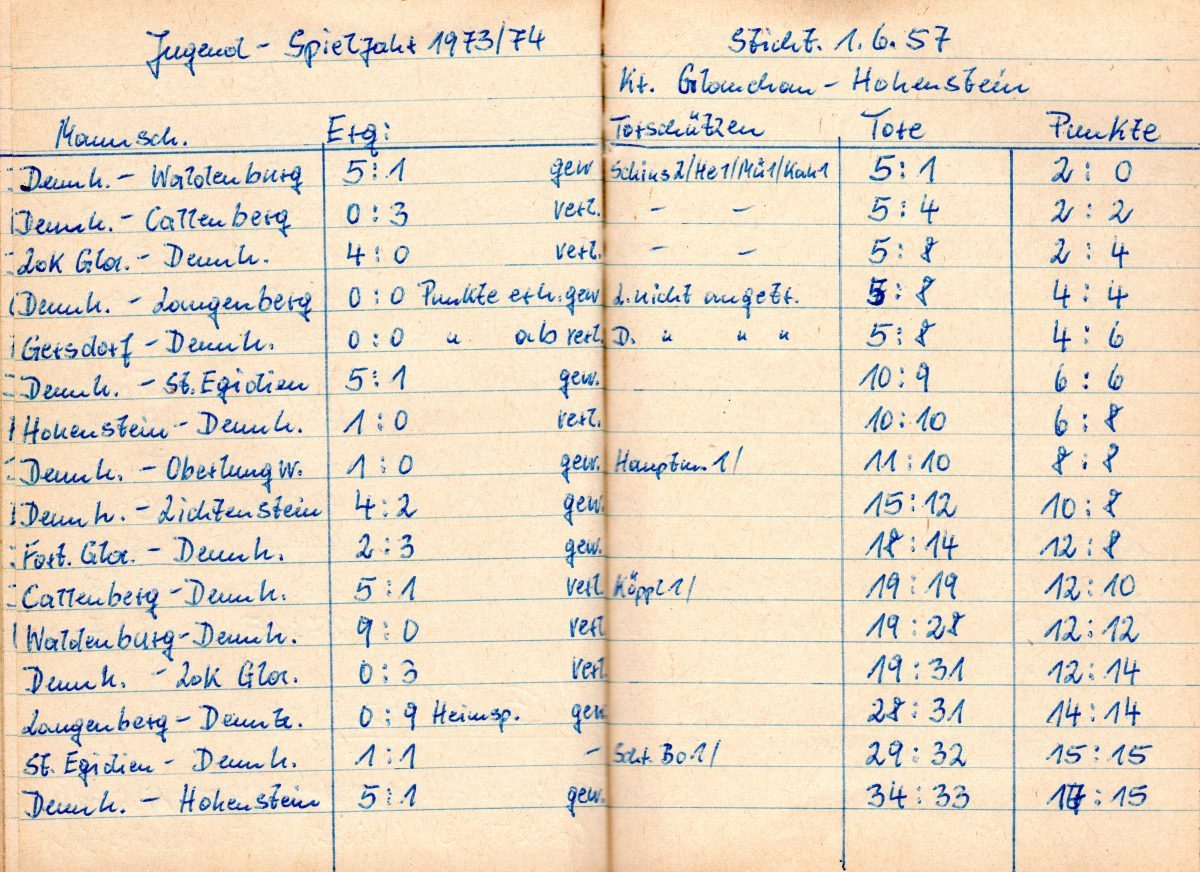 Jugend - Spieljahr 1973/74 Sticht. 1.6.57
Kr. Glauchau - Hohenstein
Mannsch. Erg: Torschützen Tore Punkte
Dennh. - Waldenburg 5:1 gew. Schins2/He1/Mü1/Kah1 5:1 2:0
Dennh. - Callenberg 0:3 verl. - - 5:4 2:2
Lok Gla. - Dennh. 4:0 verl. - - 5:8 2:4
Dennh. - Langenberg 0:0 Punkte erh. gew. L. nicht angetr. 5:8 4:4
Gersdorf - Dennh. 0:0 " ab verl. D. " " " 5:8 4:6
Dennh. - St. Egidien 5:1 gew. 10:9 6:6
Hohenstein - Dennh. 1:0 verl. 10:10 6:8
Dennh. - Oberlungw. 1:0 gew. Hauptm. 1/ 11:10 8:8
Dennh. - Lichtenstein 4:2 gew. 15:12 10:8
Fort. Gla. - Dennh. 2:3 gew. 18:14 12:8
Callenberg - Dennh. 5:1 verl. Köppl 1/ 19:19 12:10
Waldenburg - Dennh. 9:0 verl. 19:28 12:12
Dennh. - Lok Gla. 0:3 verl. 19:31 12:14
Langenberg - Dennh. 0:9 Heimsp. gew. 28:31 14:14
St. Egidien - Dennh. 1:1 - Bo 1/ 29:32 15:15
Dennh. - Hohenstein 5:1 gew. 34:33 17:15